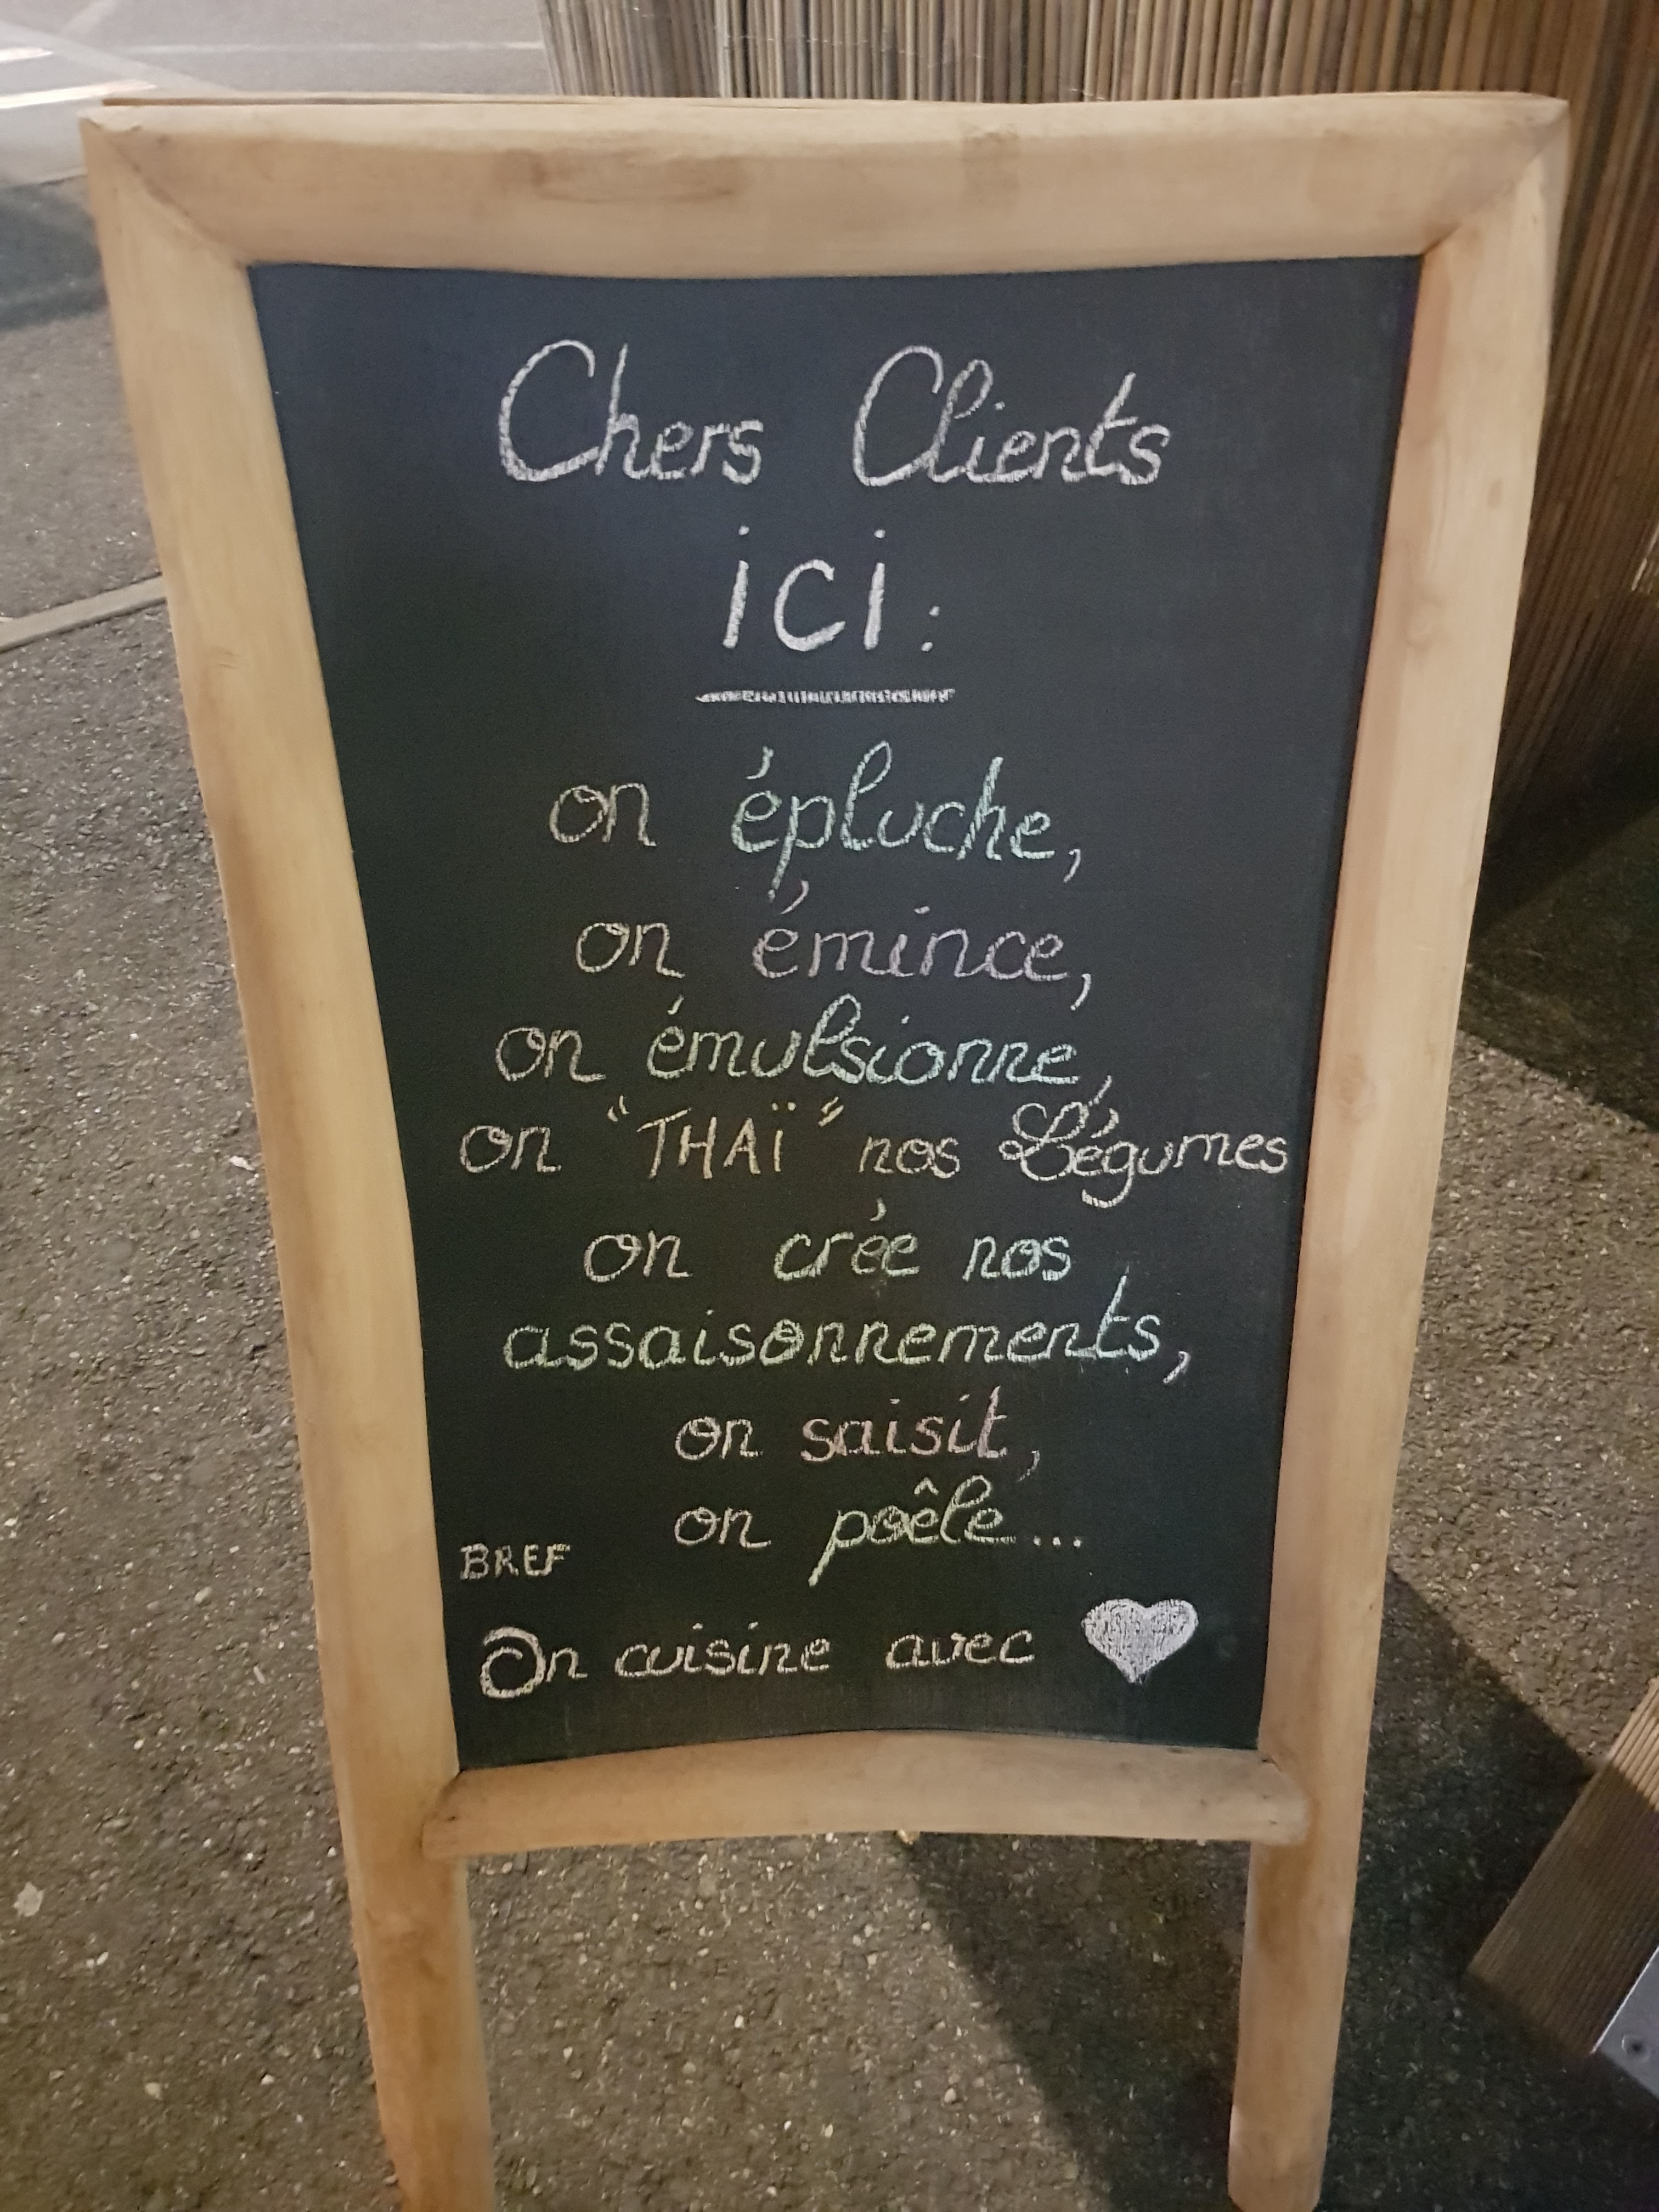 Chers Clients
ici :
on épluche,
on émince,
on émulsionne,
on "THAÏ" nos Légumes
on crée nos
assaisonnements,
on saisit,
on poêle...
BREF
On cuisine avec ♥